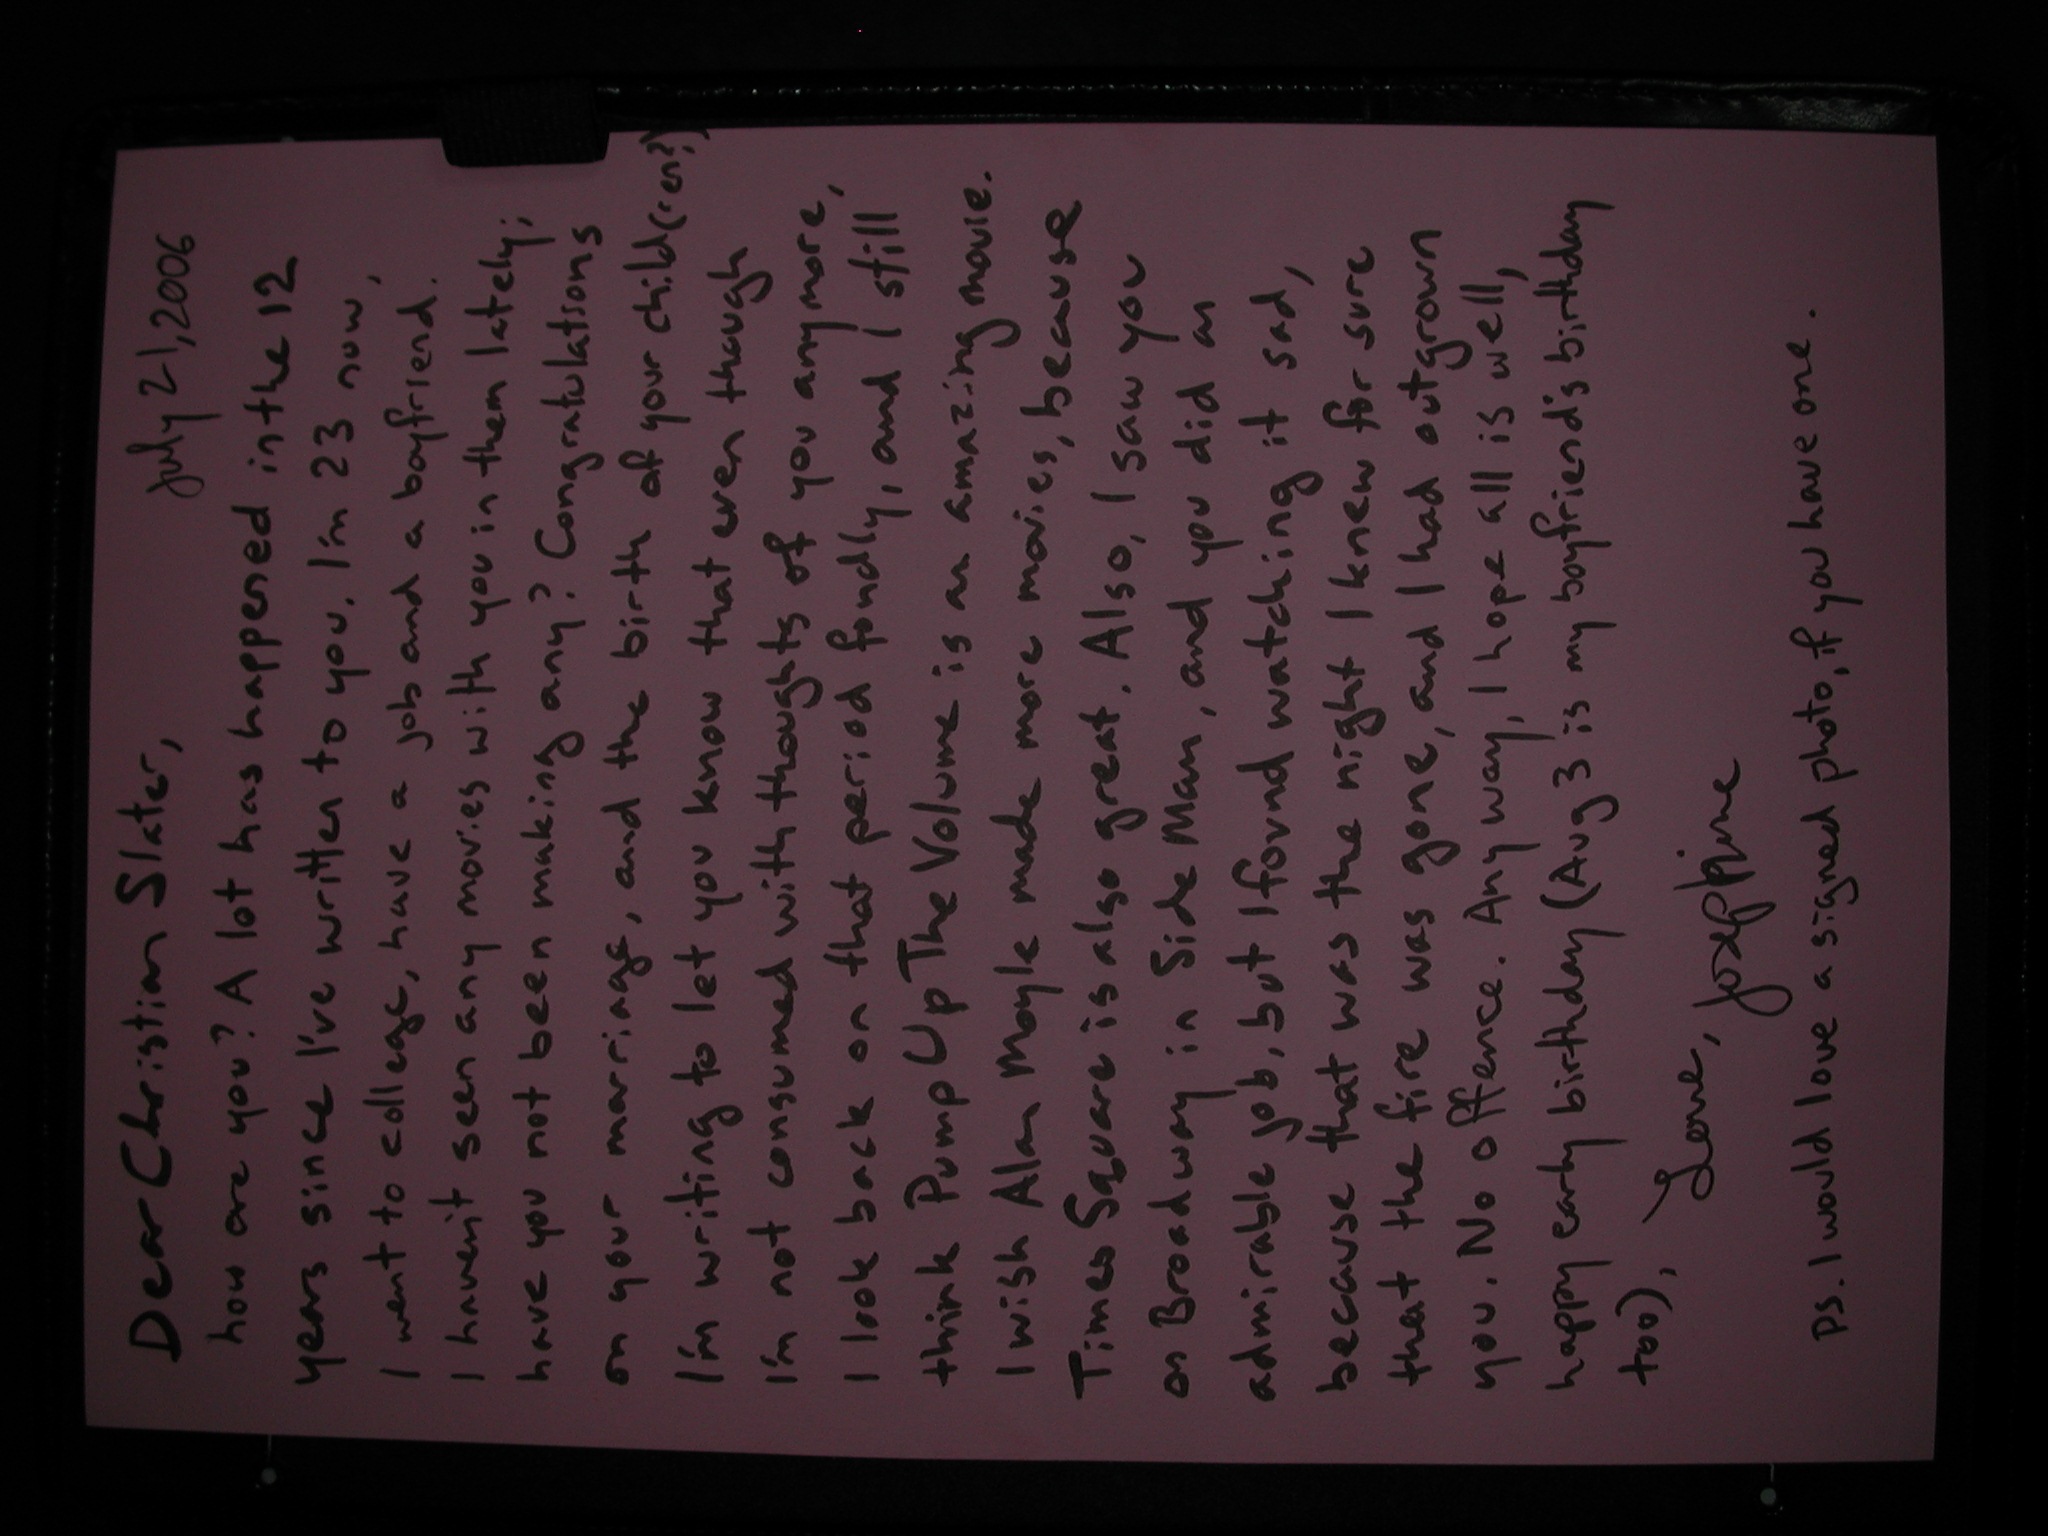 July 21, 2006
Dear Christian Slater,
how are you? A lot has happened in the 12
years since I've written to you. I'm 23 now,
I went to college, have a job and a boyfriend.
I haven't seen any movies with you in them lately;
have you not been making any? Congratulations
on your marriage, and the birth of your child(ren?)
I'm writing to let you know that even though
I'm not consumed with thoughts of you anymore,
I look back on that period fondly, and I still
think Pump Up The Volume is an amazing movie.
I wish Alan Moyle made more movies, because
Times Square is also great. Also, I saw you
on Broadway in Side Man, and you did an
admirable job, but I found watching it sad,
because that was the night I knew for sure
that the fire was gone, and I had outgrown
you. No offence. Any way, I hope all is well,
happy early birthday (Aug 3 is my boyfriend's birthday
too),
Love, Josephine
Ps. I would love a signed photo, if you have one.